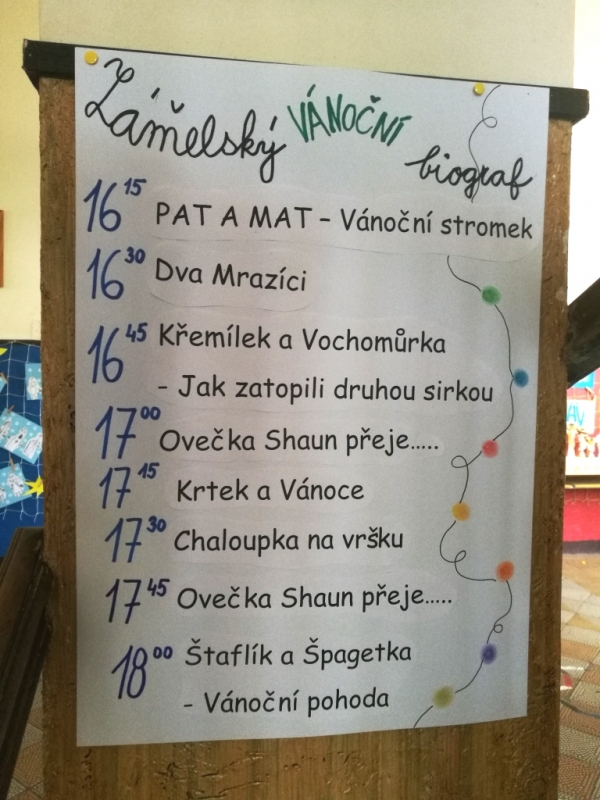 Zámělský VÁNOČNÍ biograf
16 15 PAT A MAT – Vánoční stromek
16 30 Dva Mrazíci
16 45 Křemílek a Vochomůrka
- Jak zatopili druhou sirkou
17 00 Ovečka Shaun přeje.....
17 15 Krtek a Vánoce
17 30 Chaloupka na vršku
17 45 Ovečka Shaun přeje.....
18 00 Štaflík a Špagetka
- Vánoční pohoda